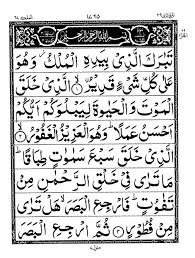 بِسْمِ اللهِ الرَّحْمٰنِ الرَّحِیْمِ
تَبٰرَكَ الَّذِیْ بِیَدِهِ الْمُلْكُ وَهُوَ
عَلٰی كُلِّ شَیْءٍ قَدِیْرُ ۙ الَّذِیْ خَلَقَ
الْمَوْتَ وَالْحَیٰوةَ لِیَبْلُوَكُمْ اَیُّكُمْ
اَحْسَنُ عَمَلًا ؕ وَهُوَ الْعَزِیْزُ الْغَفُوْرُ ۙ
الَّذِیْ خَلَقَ سَبْعَ سَمٰوٰتٍ طِبَاقًا ؕ
مَا تَرٰی فِیْ خَلْقِ الرَّحْمٰنِ مِنْ
تَفٰوُتٍ ؕ فَارْجِعِ الْبَصَرَ ۙ هَلْ تَرٰی
مِنْ فُطُوْرٍ ثُمَّ ارْجِعِ الْبَصَرَ